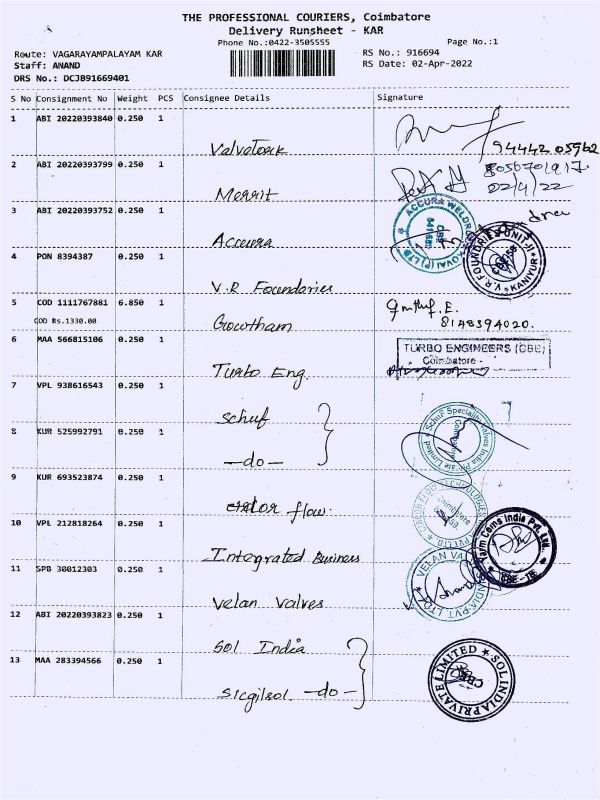 THE PROFESSIONAL COURIERS, Coimbatore
Delivery Runsheet - KAR
Phone No.:0422-3505555 Page No.:1
Route: VAGARAYAMPALAYAM KAR RS No.: 916694
Staff: ANAND RS Date: 02-Apr-2022
DRS No.: DCJB91669401
S No Consignment No Weight PCS Consignee Details Signature
1 ABI 20220393840 0.250 1
Valvetork 94442 05962
2 ABI 20220393799 0.250 1
Merrit 02/4/22
3 ABI 20220393752 0.250 1
Accura ACCURA
4 PON 8394387 0.250 1
V.R Foundaries V.R.FOUNDRIES UNIT-II KANIYUR
5 COD 1111767881 6.850 1
COD Rs.1330.00
Gowtham 8148394020.
6 MAA 566815106 0.250 1
TURBO ENGINEERS (CBE)
Coimbatore
Turbo Eng.
7 VPL 938616543 0.250 1
Schuf
Schuf Speciality Valves India Private Limited
8 KUR 525992791 0.250 1
-do-
9 KUR 693523874 0.250 1
flow.
10 VPL 212818264 0.250 1
Integrated Business
11 SPB 30012303 0.250 1
Velan Valves VELAN VALVES INDIA PVT LTD
12 ABI 20220393823 0.250 1
Sol India
13 MAA 283394566 0.250 1
Sicgilsol -do-
SOL INDIA PRIVATE LIMITED